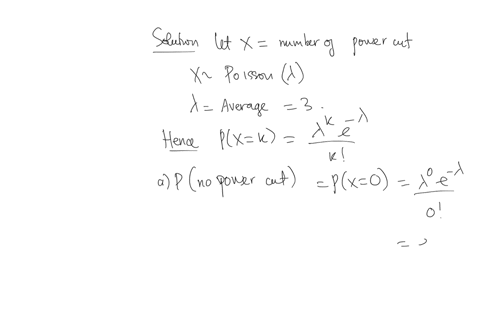 Solution let X = number of power cut
X~ Poisson (λ)
λ = Average = 3.
Hence P(X=k) = λ^k e^-λ / k!
a) P (no power cut) = P(X=0) = λ^0 e^-λ / 0!
=